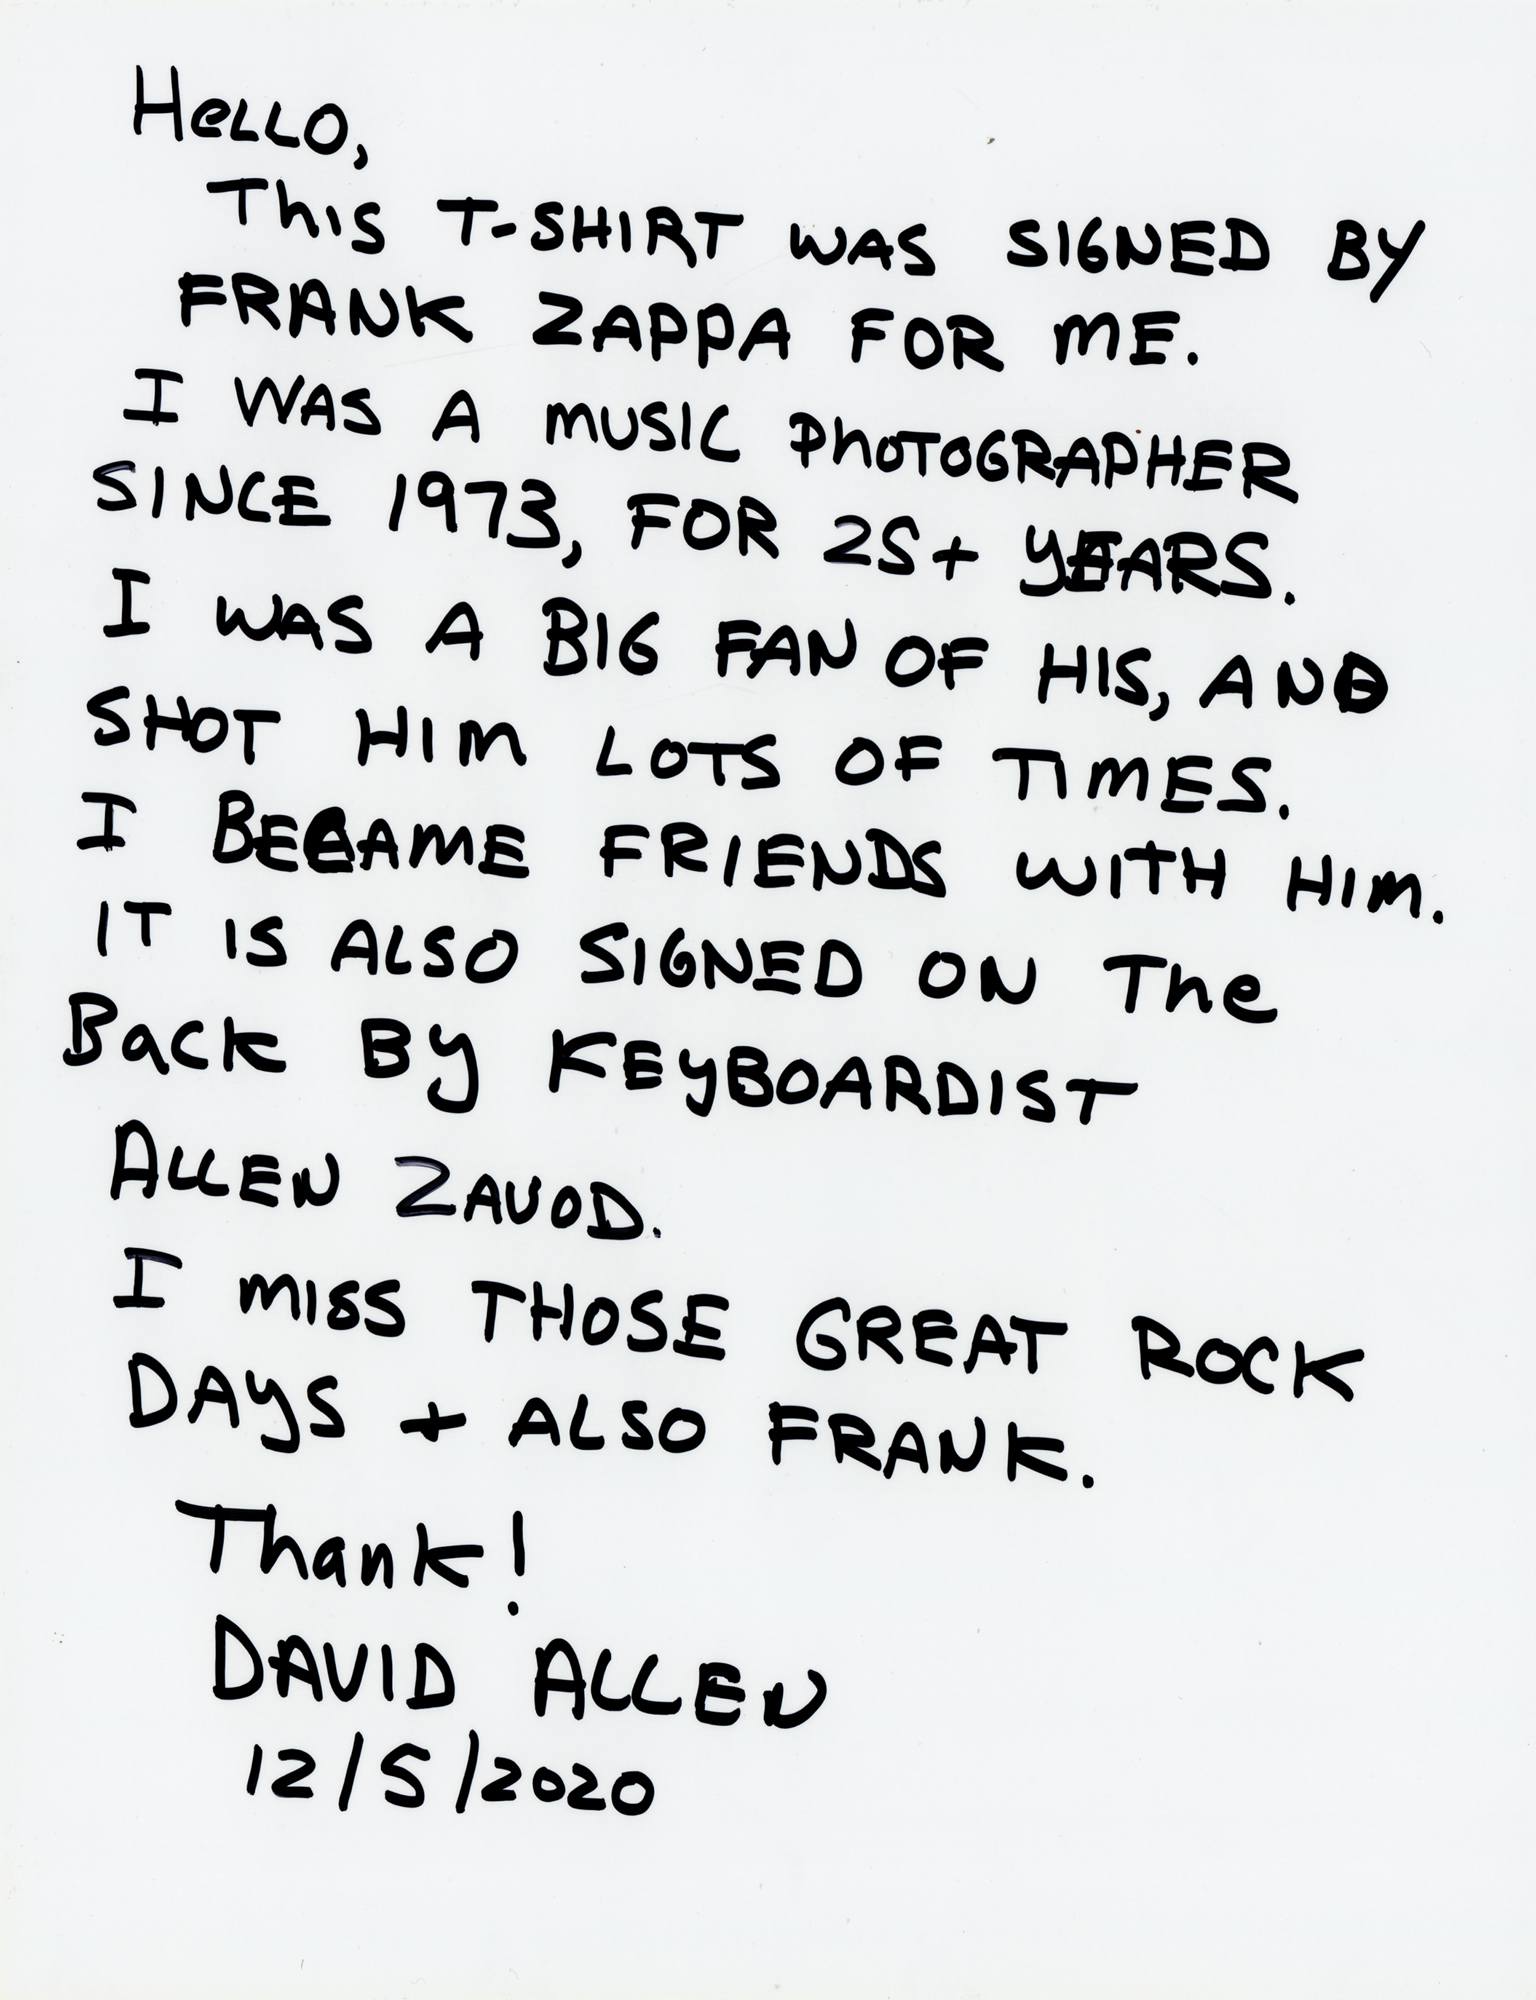 HeLLO,
This T-SHIRT WAS SIGNED BY
FRANK ZAPPA FOR ME.
I WAS A MUSIC PhOTOGRAPHER
SINCE 1973, FOR 25+ YEARS.
I WAS A BIG FAN OF HIS, AND
SHOT HIM LOTS OF TIMES.
I BECAME FRIENDS WITH HIM.
IT IS ALSO SIGNED ON The
Back BY KEYBOARDIST
ALLEN ZAVOD.
I MISS THOSE GREAT ROCK
DAYS + ALSO FRANK.
Thank!
DAVID ALLEN
12/5/2020